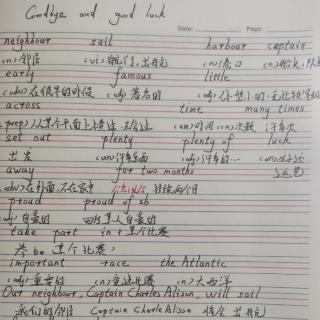 Goodbye and good luck
Date: Page:
neighbour sail harbour captain
(n) 邻居 (vi) 航行,出开元 (n) 港口 (n) 船长
early famous little
(adv) 在很早的时候 (adj) 著名的 (adj)
across time many times
(prep) 从某个平面上 (n) 时间 (n) 次数 许多次
set out plenty plenty of luck
出发 (n) 许多东西 (adj) 许多的… (n)
away for two months
(adv) 在外面,不在家中 持续两个月
proud proud of sb
(adj) 自豪的 因某人自豪的
take part in + 某个比赛
参加某个比赛
important race the Atlantic
(adj) 重要的 (n) 竞速比赛 (n) 大西洋
Our neighbour, Captain Charles Alison, will sail
我们的邻居 Captain Charles Alison 将会